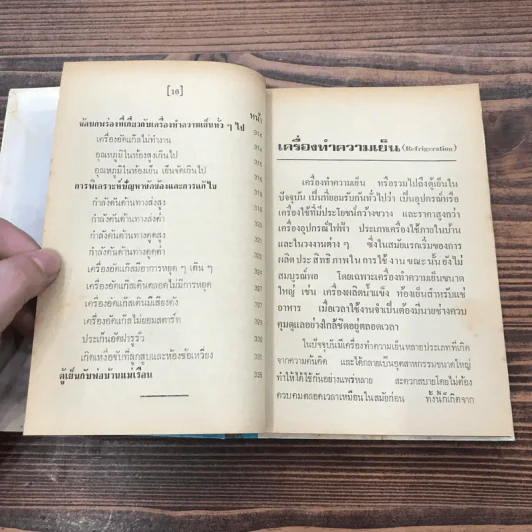 [16]
หน้า
ข้อบกพร่องที่เกี่ยวกับเครื่องทำความเย็นทั่ว ๆ ไป
เครื่องอัดแก๊สไม่ทำงาน
อุณหภูมิในห้องสูงเกินไป
อุณหภูมิในห้องเย็น เย็นจัดเกินไป
การวิเคราะห์ปัญหาข้อขัดข้องและการแก้ไข
กำลังดันด้านทางส่งสูง
กำลังดันด้านทางส่งต่ำ
กำลังดันด้านทางดูดสูง
กำลังดันด้านทางดูดต่ำ
เครื่องอัดแก๊สมีอาการหยุด ๆ เดิน ๆ
เครื่องอัดแก๊สเดินตลอดไม่มีการหยุด
เครื่องอัดแก๊สเดินมีเสียงดัง
เครื่องอัดแก๊สไม่ยอมสตาร์ท
ประเก็นอัดฝารูรั่ว
เกิดเหงื่อจับที่ลูกสูบและห้องข้อเหวี่ยง
ตู้เย็นกับพ่อบ้านแม่เรือน
เครื่องทำความเย็น (Refrigeration)
เครื่องทำความเย็น หรือรวมไปถึงตู้เย็นใน
ปัจจุบัน เป็นที่ยอมรับกันทั่วไปว่า เป็นอุปกรณ์หรือ
เครื่องใช้ที่มีประโยชน์กว้างขวาง และราคาสูงกว่า
เครื่องอุปกรณ์ไฟฟ้า ประเภทเครื่องใช้ภายในบ้าน
และในวงงานต่าง ๆ ซึ่งในสมัยแรกเริ่มของการ
ผลิตประสิทธิภาพในการใช้งานขณะนั้นยังไม่
สมบูรณ์พอ โดยเฉพาะเครื่องทำความเย็นขนาด
ใหญ่ เช่น เครื่องผลิตน้ำแข็ง ห้องเย็นสำหรับแช่
อาหาร เมื่อเวลาใช้งานจำเป็นต้องมีนายช่างควบ
คุมดูแลอย่างใกล้ชิดอยู่ตลอดเวลา
ในปัจจุบันมีเครื่องทำความเย็นหลายประเภทที่เกิด
จากความคิดค้น และได้กลายเป็นอุตสาหกรรมขนาดใหญ่
ทำให้ได้ใช้กันอย่างแพร่หลาย สะดวกสบายโดยไม่ต้อง
ควบคุมตลอดเวลาเหมือนในสมัยก่อน ทั้งนี้ก็เกิดจาก